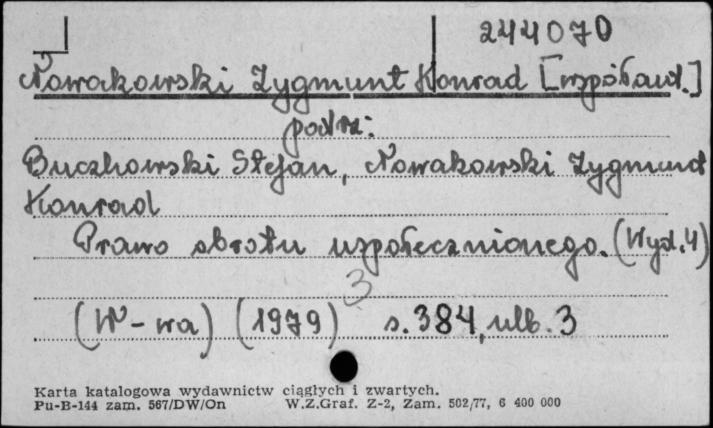 244070
Nowakowski Zygmunt Konrad [współaut.]
podrz:
Buczkowski Stefan, Nowakowski Zygmunt
Konrad
Prawo obrotu uspołecznionego. (Wyd. 4)
3
(W-wa) (1979) s. 384, nlb. 3
Karta katalogowa wydawnictw ciągłych i zwartych.
Pu-B-144 zam. 567/DW/On W.Z.Graf. Z-2, Zam. 502/77, 6 400 000